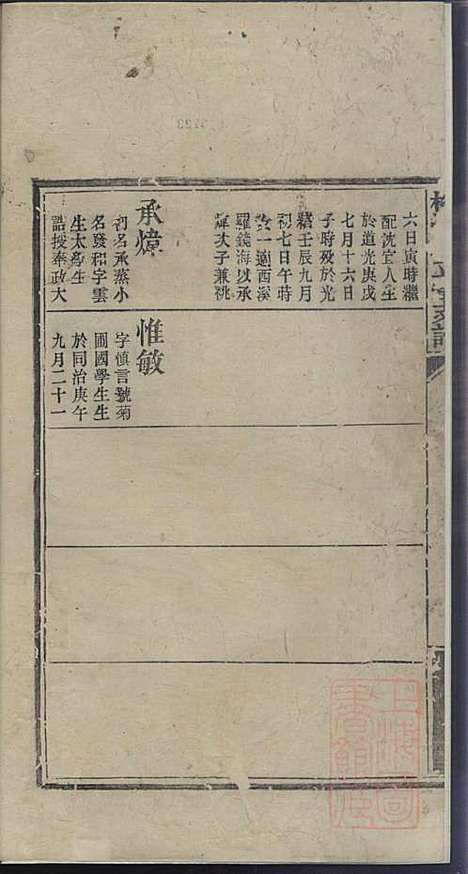 六日寅時繼
配沈宜人生
於道光庚戌
七月十六日
子時歿於光
緒壬辰九月
初七日午時
女一適西溪
羅錢海以承
煒次子兼祧
承煒
初名承蒸小
名發和字雲
生太學生
誥授奉政大
惟敏
字慎言號菊
圃國學生生
於同治庚午
九月二十一